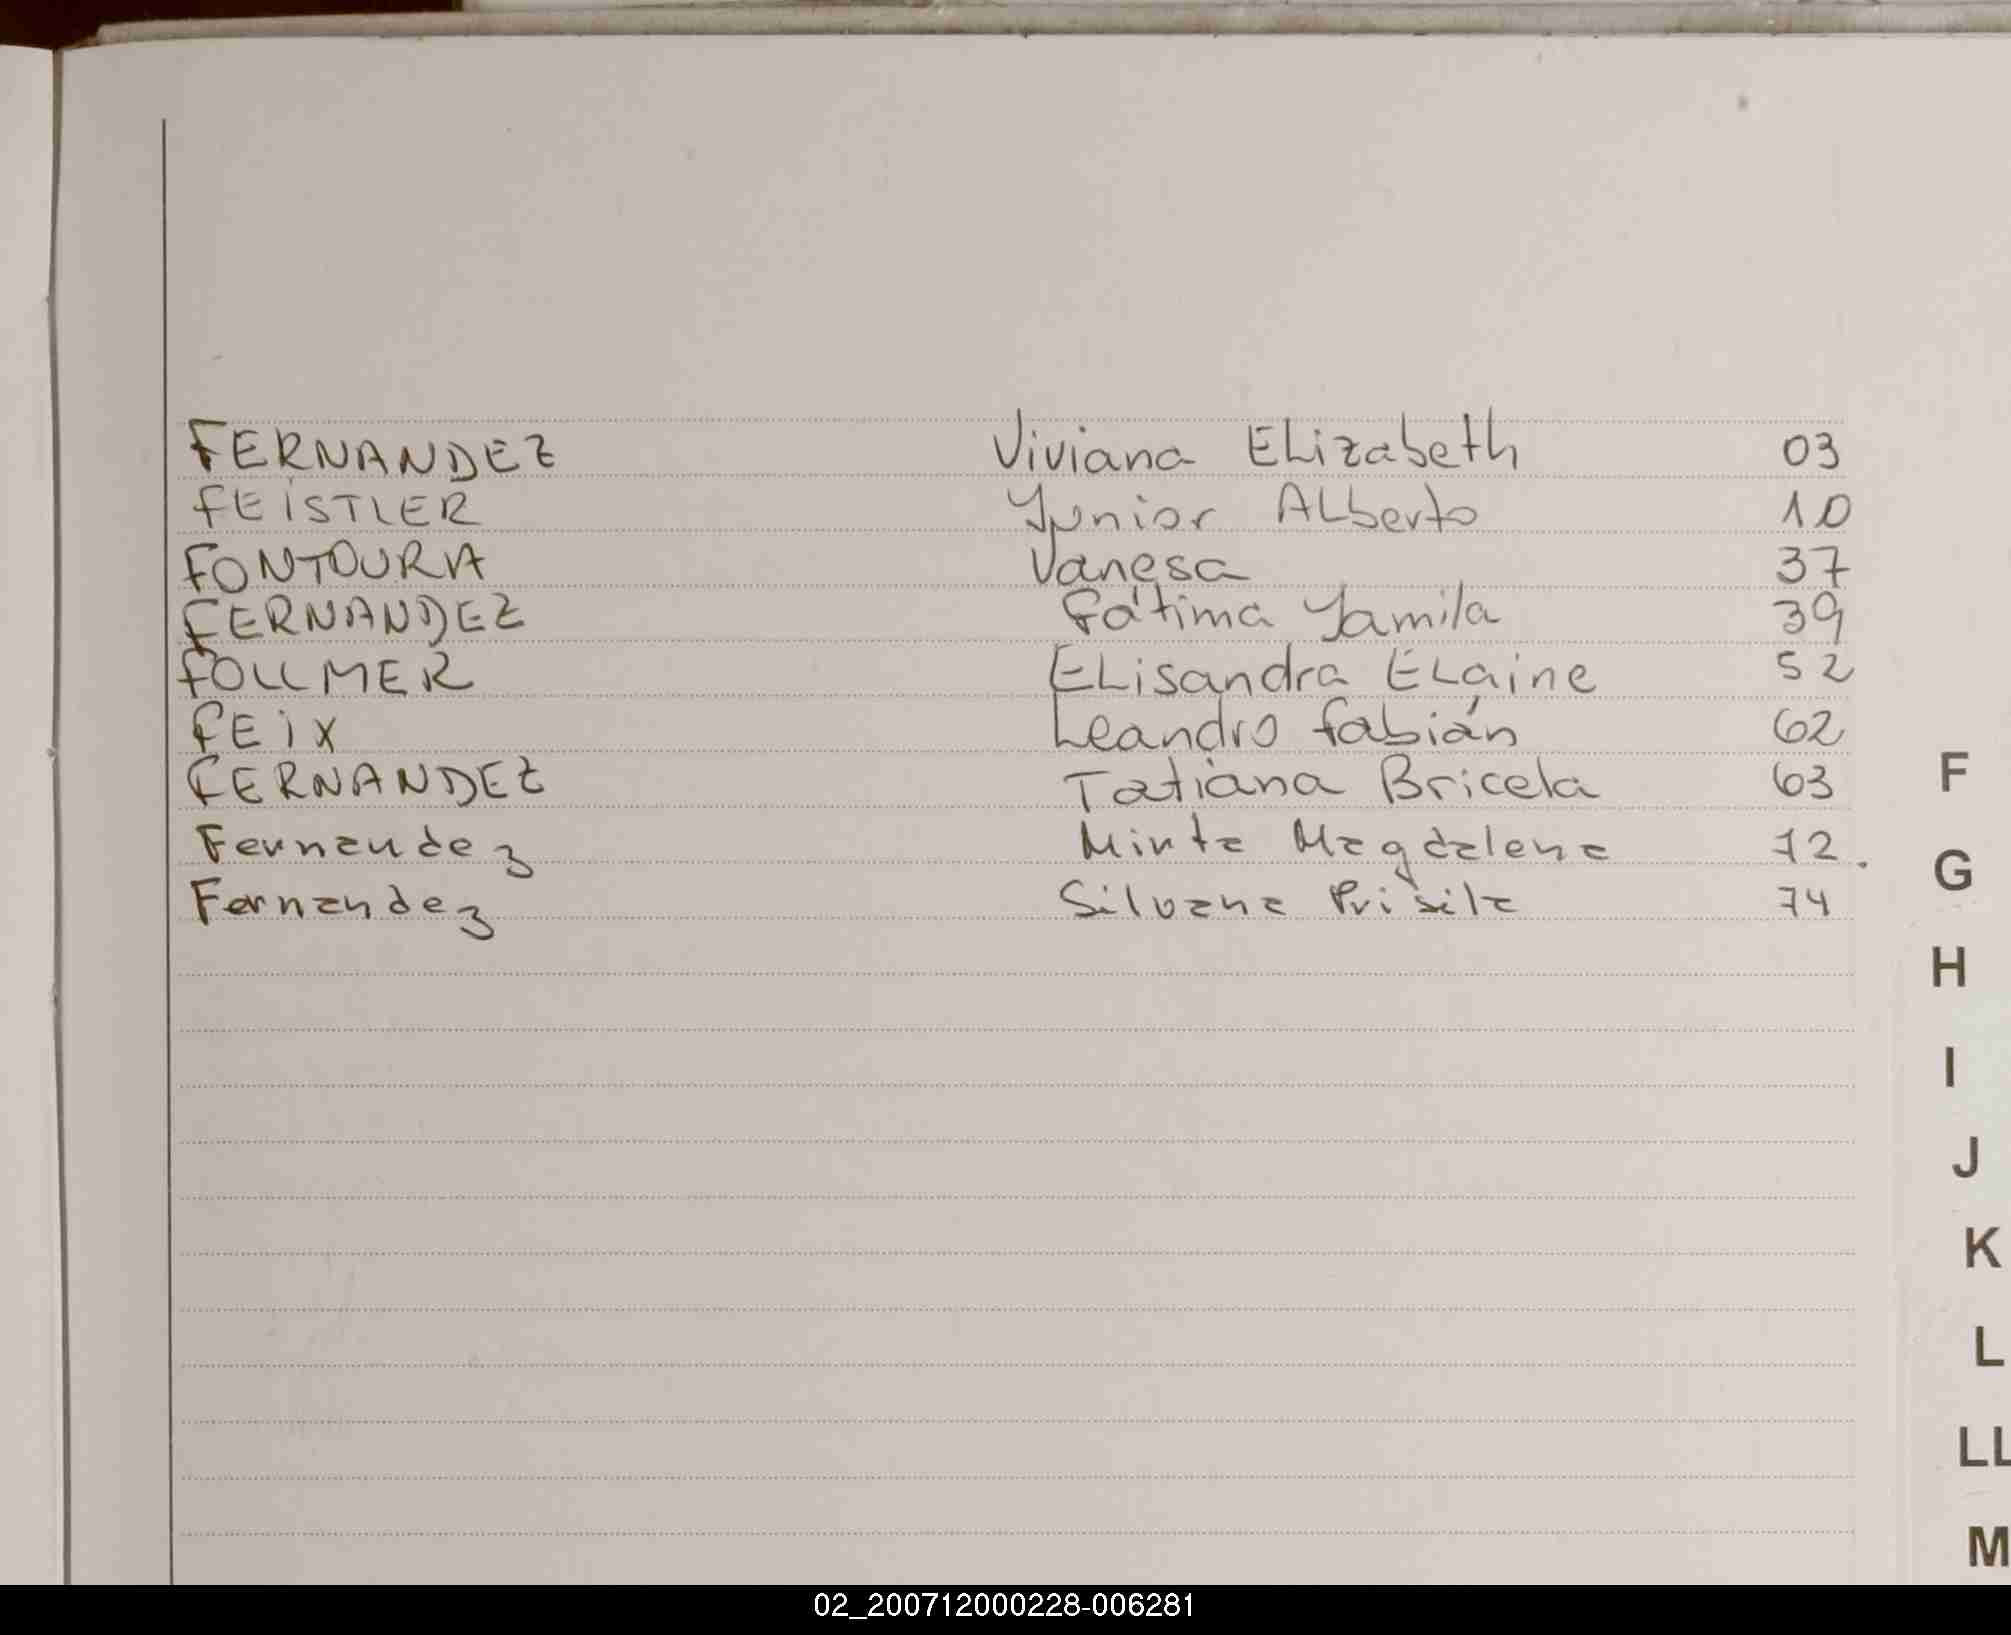 FERNANDEZ Viviana ELizabeth 03
FEISTLER Yunior ALberto 10
FONTOURA Vanesa 37
FERNANDEZ Fátima Yamila 39
FOLLMER ELisandra ELaine 52
FEIX Leandro fabián 62
FERNANDEZ Tatiana Bricela 63
Fernandez Mirta Magdalena 72.
Fernandez Silvana Prisila 74
F
G
H
I
J
K
L
LL
M
02_200712000228-006281